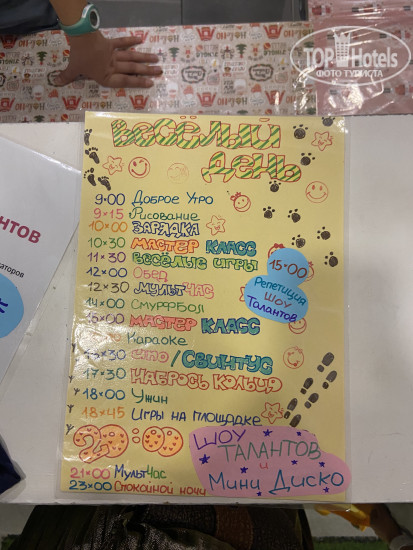 TOPHotels
ФОТО ТУРИСТА
ВЕСЁЛЫЙ
ДЕНЬ
9:00 Доброе Утро
9:15 Рисование
10:00 ЗАРЯДКА
10:30 МАСТЕР КЛАСС
11:30 ВЕСЁЛЫЕ ИГРЫ
12:00 Обед
12:30 МУЛЬТЧАС
14:00 СМУРФБОЛ
15:00 МАСТЕР КЛАСС
Караоке
УНО/СВИНТУС
17:30 НАБРОСЬ КОЛЬЦА
18:00 Ужин
18:45 ИГРЫ НА ПЛОЩАДКЕ
20:00
ШОУ
ТАЛАНТОВ
и
МИНИ ДИСКО
21:00 МультЧас
23:00 Спокойной ночи
15:00
РЕПЕТИЦИЯ
ШОУ
ТАЛАНТОВ
АНТОВ
аторов